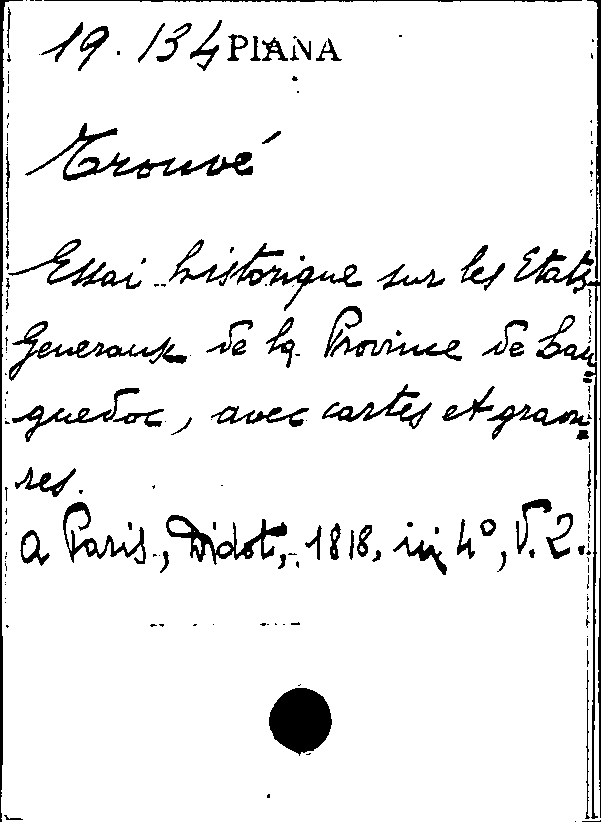 19.134 PIANA
Trouvé
Essai historique sur les Etats
Generaux de la Province de Lan=
guedoc, avec cartes et gravu=
res.
a Paris, Didot, 1818, in 4°, V. 2.